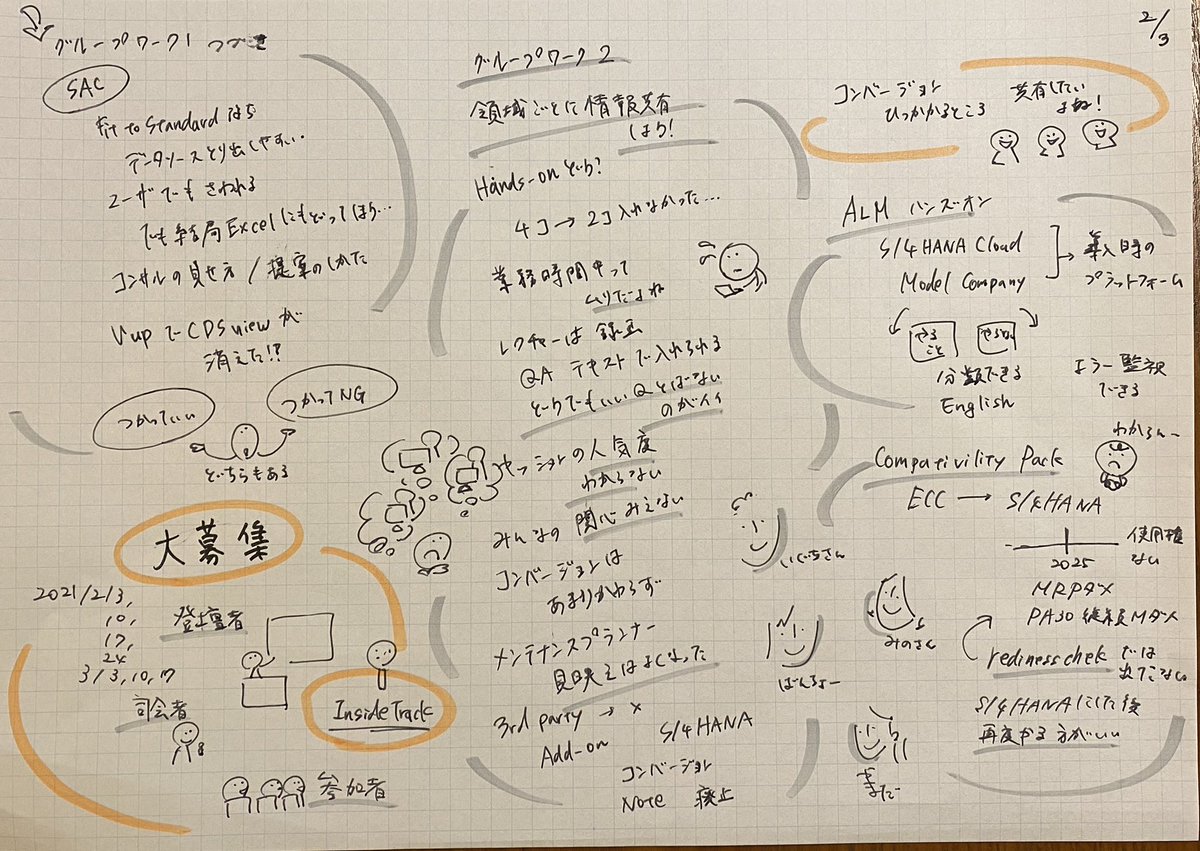 2/3
グループワーク1 つづき
SAC
Fit to Standard なら
データソースとり出しやすい‥
ユーザでもさわれる
でも結局Excelにもどってしまう…
コンサルの見せ方/提案のしかた
Vup で CDS view が
消えた!?
つかっていい
つかってNG
どちらもある
大募集
2021/2/3,
10,
17,
24
3/3,10,17
登壇者
司会者
Inside Track
参加者
グループワーク2
領域ごとに情報共有
しよう!
Hands-on どう?
4コ→2コ 入れなかった…
業務時間中って
ムリだよね
レクチャーは 録画
QA テキストで入れられる
どーでもいいQとばない
のがイイ
セッションの人気度
わからない
みんなの 関心みえない
コンバージョンは
あまりかわらず
メンテナンスプランナー
見映えはよくなった
3rd party → ×
Add-on
S/4 HANA
コンバージョン
Note 廃止
いぐちさん
みのさん
ばんちょー
コンバージョン
ひっかかるところ
共有したい
よね!
ALM ハンズオン
S/4 HANA Cloud
Model Company
→ 導入時の
プラットフォーム
やる
こと
分類できる
English
エラー監視
できる
わからんー
Compativility Pack
ECC → S/4 HANA
2025
使用権
ない
MRPダメ
PA30 従業員Mダメ
rediness chek では
出てこない
S/4 HANAにした後
再度やる方がいい